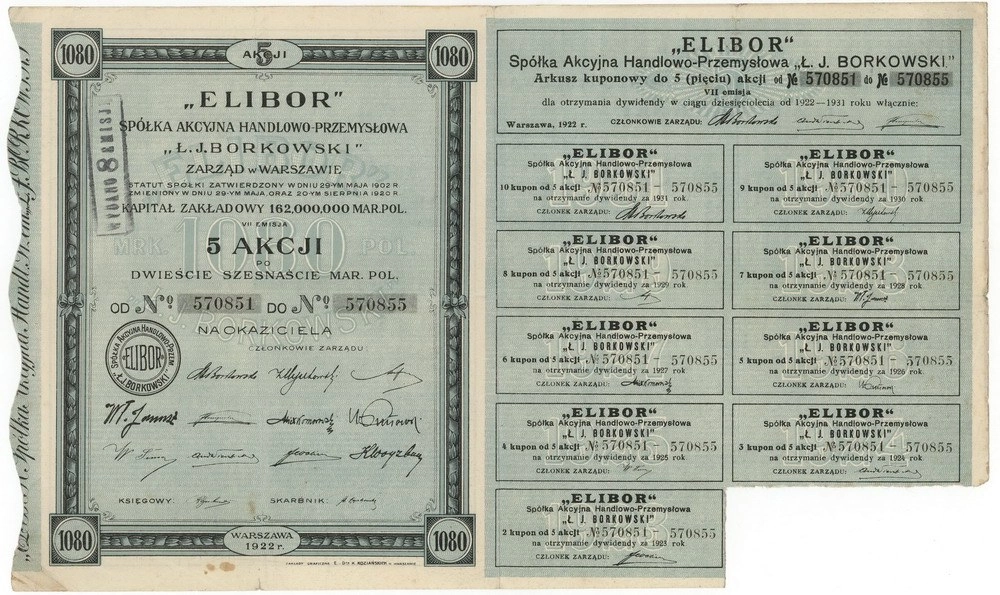 1080
5
AKCJI
1080
„ELIBOR”
SPÓŁKA AKCYJNA HANDLOWO-PRZEMYSŁOWA
„Ł. J. BORKOWSKI”
ZARZĄD w WARSZAWIE
STATUT SPÓŁKI ZATWIERDZONY W DNIU 29-YM MAJA 1902 R.
ZMIENIONY W DNIU 29-YM MAJA, ORAZ 20-YM SIERPNIA 1920 R.
KAPITAŁ ZAKŁADOWY 162,000,000 MAR. POL.
VII EMISJA
MRK. 1080 POL.
5 AKCJI
PO
DWIEŚCIE SZESNAŚCIE MAR. POL.
OD No 570851 DO No 570855
NA OKAZICIELA
CZŁONKOWIE ZARZĄDU
SPÓŁKA AKCYJNA HANDLOWO-PRZEM.
ELIBOR
Ł. J. BORKOWSKI
KSIĘGOWY:
SKARBNIK:
1080
WARSZAWA
1922 r.
1080
WYDANO 8
„ELIBOR“
Spółka Akcyjna Handlowo-Przemysłowa „Ł. J. BORKOWSKI.”
Arkusz kuponowy do 5 (pięciu) akcji od № 570851 do № 570855
VII emisja
dla otrzymania dywidendy w ciągu dziesięciolecia od 1922—1931 roku włącznie:
Warszawa, 1922 r.
CZŁONKOWIE ZARZĄDU:
„ELIBOR“
Spółka Akcyjna Handlowo-Przemysłowa
„Ł. J. BORKOWSKI”
10 kupon od 5 akcji № 570851 - 570855
na otrzymanie dywidendy za 1931 rok
CZŁONEK ZARZĄDU:
„ELIBOR“
Spółka Akcyjna Handlowo-Przemysłowa
„Ł. J. BORKOWSKI”
9 kupon od 5 akcji № 570851 - 570855
na otrzymanie dywidendy za 1930 rok
CZŁONEK ZARZĄDU:
„ELIBOR“
Spółka Akcyjna Handlowo-Przemysłowa
„Ł. J. BORKOWSKI”
8 kupon od 5 akcji № 570851 - 570855
na otrzymanie dywidendy za 1929 rok
CZŁONEK ZARZĄDU:
„ELIBOR“
Spółka Akcyjna Handlowo-Przemysłowa
„Ł. J. BORKOWSKI”
7 kupon od 5 akcji № 570851 - 570855
na otrzymanie dywidendy za 1928 rok
CZŁONEK ZARZĄDU:
„ELIBOR“
Spółka Akcyjna Handlowo-Przemysłowa
„Ł. J. BORKOWSKI”
6 kupon od 5 akcji № 570851 - 570855
na otrzymanie dywidendy za 1927 rok
CZŁONEK ZARZĄDU:
„ELIBOR“
Spółka Akcyjna Handlowo-Przemysłowa
„Ł. J. BORKOWSKI”
5 kupon od 5 akcji № 570851 - 570855
na otrzymanie dywidendy za 1926 rok
CZŁONEK ZARZĄDU:
„ELIBOR“
Spółka Akcyjna Handlowo-Przemysłowa
„Ł. J. BORKOWSKI”
4 kupon od 5 akcji № 570851 - 570855
na otrzymanie dywidendy za 1925 rok
CZŁONEK ZARZĄDU:
„ELIBOR“
Spółka Akcyjna Handlowo-Przemysłowa
„Ł. J. BORKOWSKI”
3 kupon od 5 akcji № 570851 - 570855
na otrzymanie dywidendy za 1924 rok
CZŁONEK ZARZĄDU:
„ELIBOR“
Spółka Akcyjna Handlowo-Przemysłowa
„Ł. J. BORKOWSKI”
2 kupon od 5 akcji № 570851 - 570855
na otrzymanie dywidendy za 1923 rok
CZŁONEK ZARZĄDU: